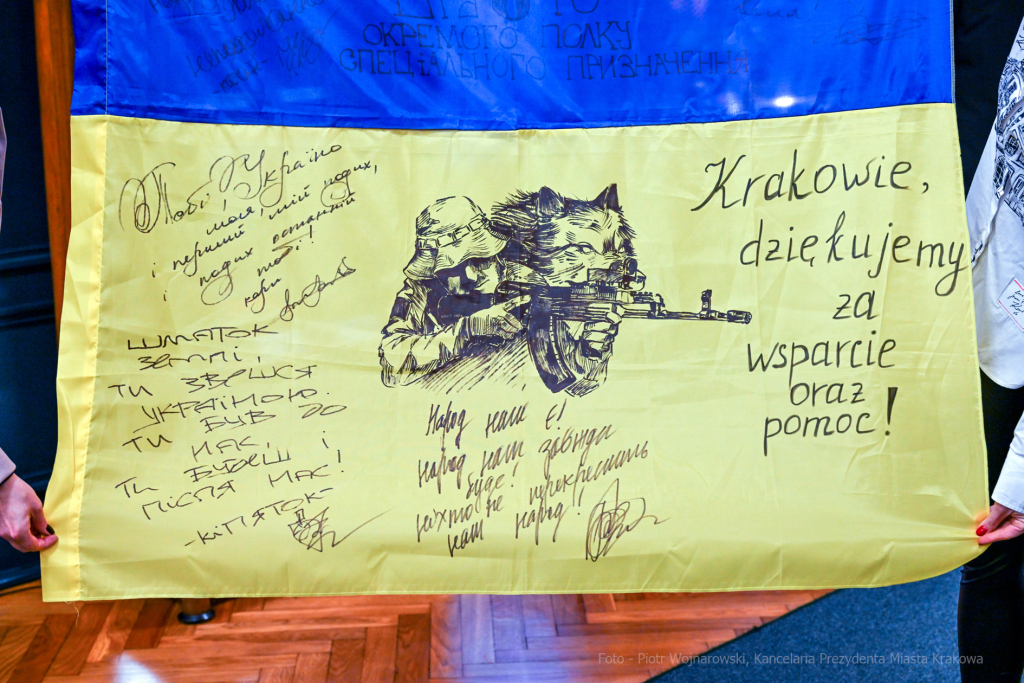 ОКРЕМОГО ПОЛКУ
СПЕЦІАЛЬНОГО ПРИЗНАЧЕННЯ
Тобі, Україно
моя, мій подих,
і перший
і подих останній
тобі!
ШМАТОК
ЗЕМЛІ,
ТИ ЗВЕШСЯ
УКРАЇНОЮ.
ТИ БУВ ДО
НАС,
ТИ БУДЕШ І
ПІСЛЯ НАС!
-КІПЯТОК-
Народ наш є!
Народ наш завжди
буде!
Ніхто не перекреслить
наш народ!
Krakowie,
dziękujemy
za
wsparcie
oraz
pomoc!
Foto - Piotr Wojnarowski, Kancelaria Prezydenta Miasta Krakowa